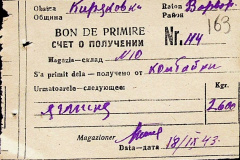 Община Кирадовки Raion Район 163
BON DE PRIMIRE
СЧЕТ О ПОЛУЧЕНИИ Nr. 114
Magazia—склад №10
S'a primit dela — получено от комбайни
Urmatoarele—следующее:
Kgr. 2.600
Magazioner
Data—дата 18/IX 43.